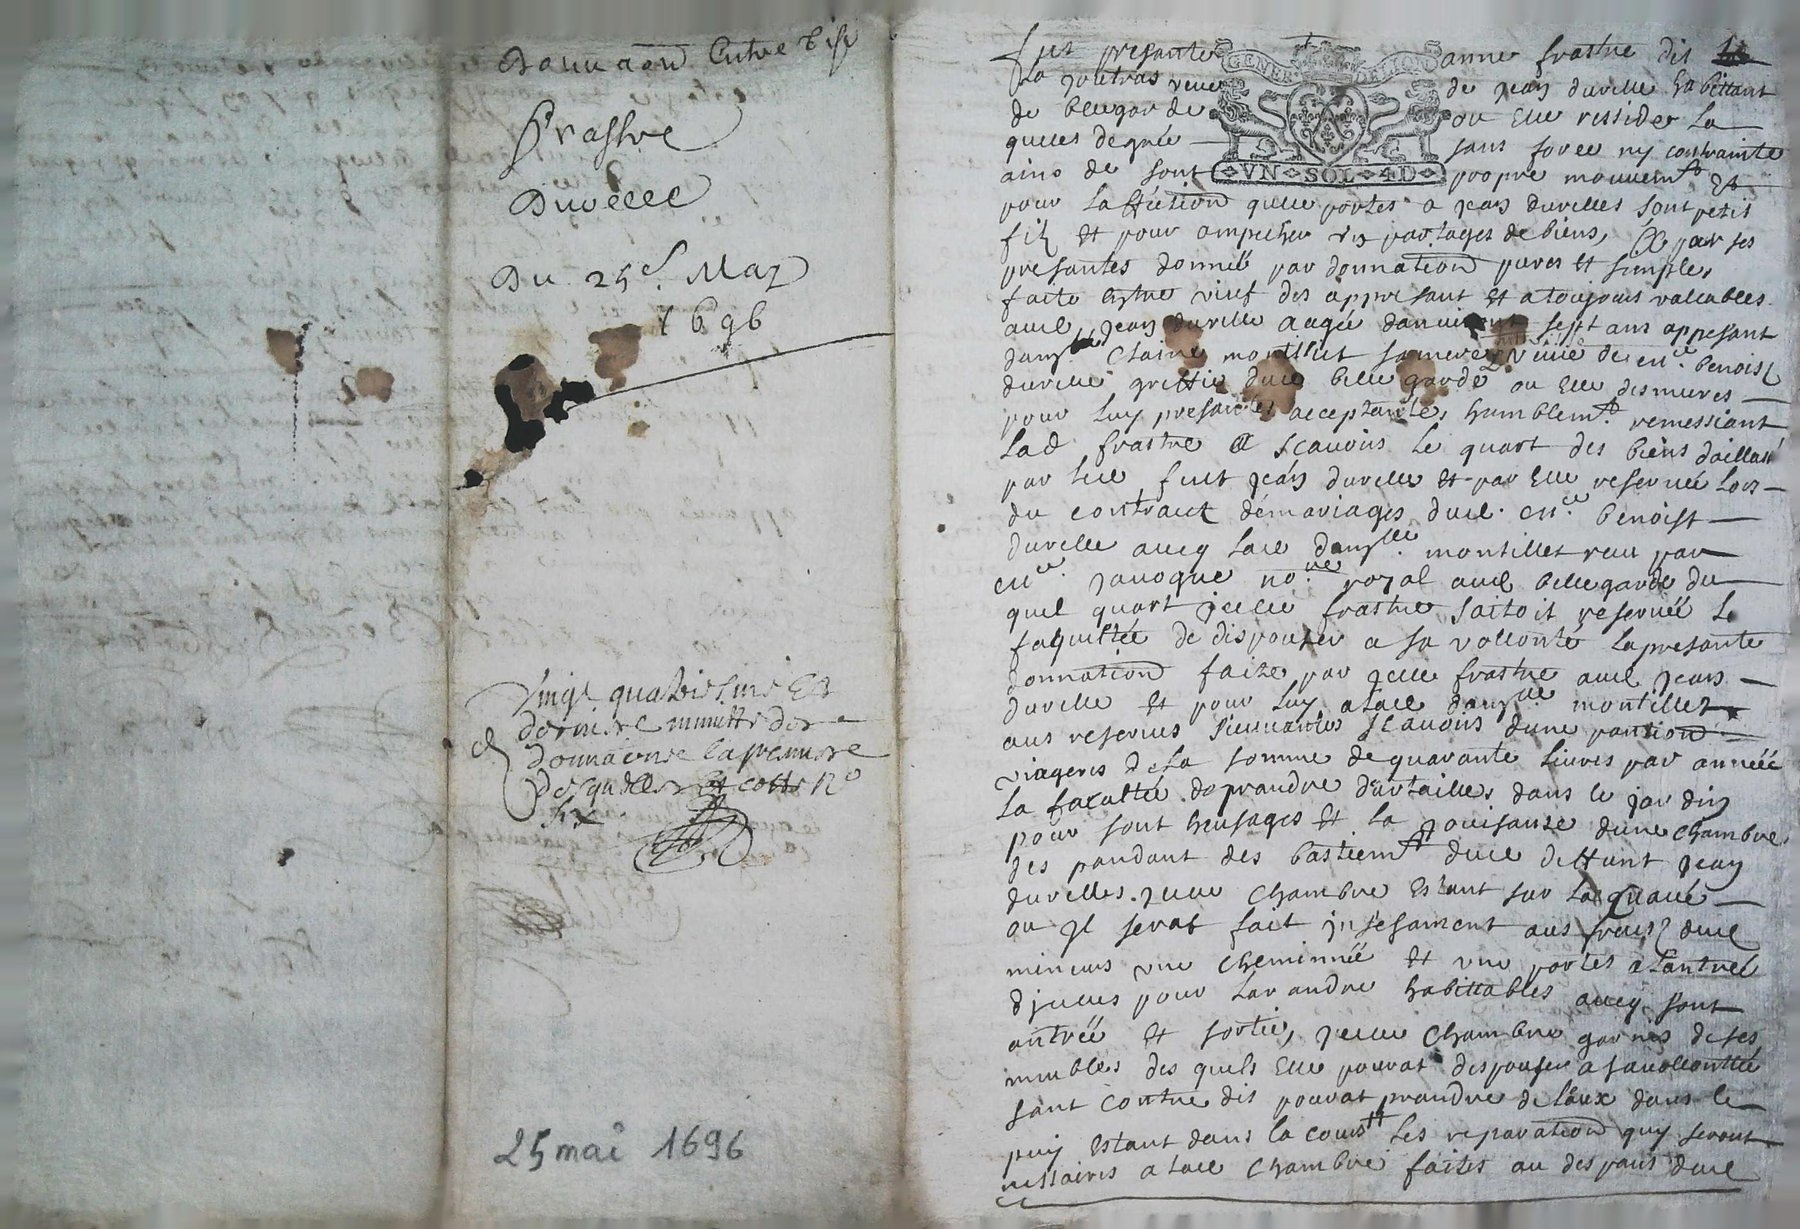 Donnaõn Entre vifz
Frastre
Duvelle
Du 25e. May
1696
Vingt quatriesme Et
derniere minutte de
donnaõn de la premiere
desquelles cotte No
six
25 mai 1696
Fut presante anne frastre dit
La Joutras veuve de Jean duvelle habittant
de bellegarde ou Elle resside La
quelles de gré sans force ny contrainte
ains de sont propre mouuemt Et
pour Laffection quelle portes a Jean duvelles sont petit
filz Et pour ampecher les partages de biens, a par ses
presantes donnée par donnation pures Et simples
faite Entre viuf des appresant Et a toujours vallables
aud Jean duvelle aagée danuiront sept ans appresant
damlle Claine montillet sa mere veuve de
duvelle greffie dud belle garde ou Elle desmures
pour Luy presantes acceptantes humblemt remessiant
Lad frastre a scauoirs Le quart des biens dellaissé
par led fut Jean duvelle Et par Elle reservée Lors
du contract de mariages dud benoist
Duvelle auecq lad damlle montillet reçu par
Janoque nore royal aud bellegarde du
quel quart Jcelle frastre sestoit reservée La
faquistée de dispouser a sa vollonté La presante
donnation faite par Jcelle frastre aud Jean
duvelle Et pour Luy a lad damlle montillet
aus reserues suiuantes scauoirs dune pantion
viageres de La somme de quarante Liures par année
La facultée de prandre dortailles dans le jardin
pour sont husages Et la Jouisanse dune chambre
des pandant des bastiemt dud deffunt Jean
duvelles. Jcelle chambre Estant sur La
ou Jl serat fait Jnsesament aus fraiz dud
mineurs vne cheminnée Et vne portes a Lantrée
dJcelles pour La randre habittables auecq sont
antrée Et sortie, Jcelle chambre garnies de ses
meubles des quels Elle pourat dispouser a sa vollontée
sant contre dit pourat prandre de Laux dans le
puiy Estant dans La cours Les reparation quy seront
nessaires a lad chambre faites au despans dud
GENER DE LION
VN SOL 4D